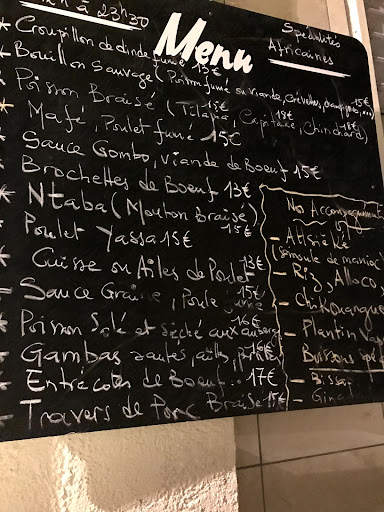 à 23h30
Menu
Spécialités
Africaines
Croupillon de dinde fumé 13€
Bouillon Sauvage (Poisson fumé ou viande, crevettes,
15€
Poisson Braisé (Tilapia, Capitaine, Chinchard)
15€ 18€ 18€
Mafé, Poulet fumé 15€
Sauce Gombo, viande de Boeuf 15€
Brochettes de Boeuf 13€
Ntaba (Mouton Braisé) 15€
Poulet Yassa 15€
Cuisse ou Ailes de Poulet 13€
Sauce Graine, Poule 15€
Poisson Salé et séché aux auberg
16€
Gambas sautes, ails, 16€
Entrécotes de Boeuf.. 17€
Travers de Porc Braisé 15€
Nos Accompagnements
- Attiéké
(Semoule de manioc
- Riz, Alloco
- Chikouangue
- Plantin Vap
Boissons spé
- Bissap
- Ging